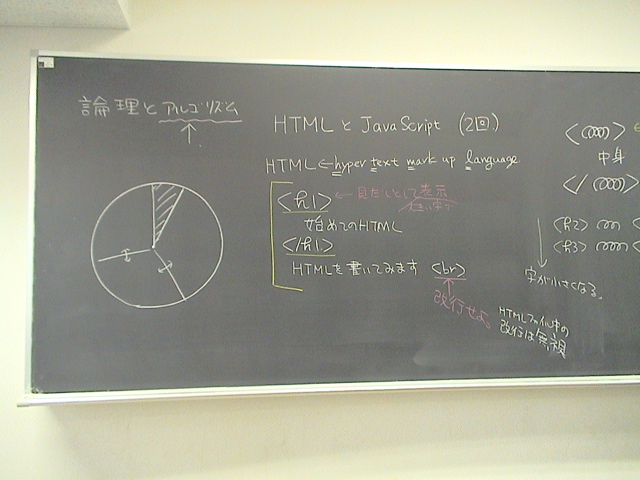 論理とアルゴリズム
HTMLとJavaScript (2回)
HTML←hyper text mark up language
<h1> ← 見だしとして表示
始めてのHTML
</h1>
HTMLを書いてみます <br>
改行せよ。
HTMLファイル中の
改行は無視
中身
<h2>
<h3>
字が小さくなる。